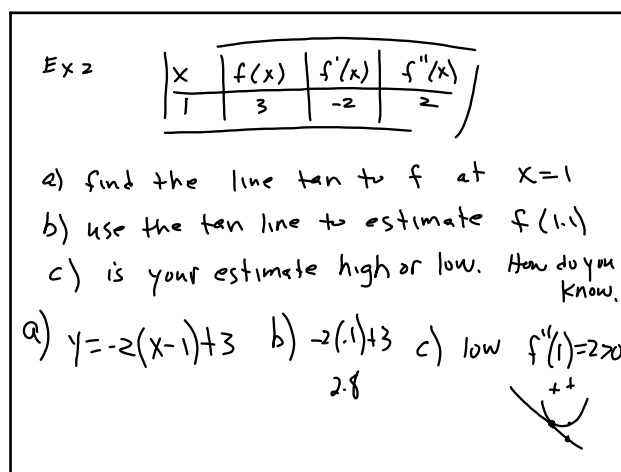 Ex 2
x f(x) f'(x) f''(x)
1 3 -2 2
a) find the line tan to f at x=1
b) use the tan line to estimate f(1.1)
c) is your estimate high or low. How do you
know.
a) y=-2(x-1)+3 b) -2(.1)+3 c) low f''(1)=2>0
2.8 ++